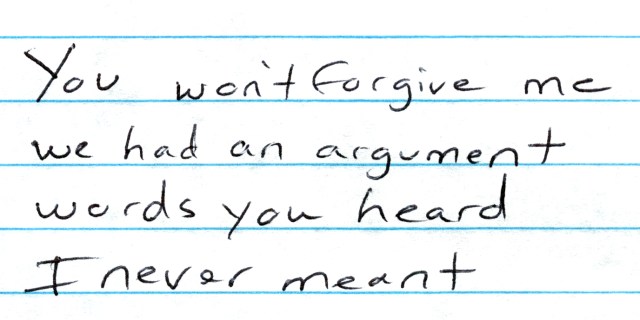 You won't forgive me
we had an argument
words you heard
I never meant